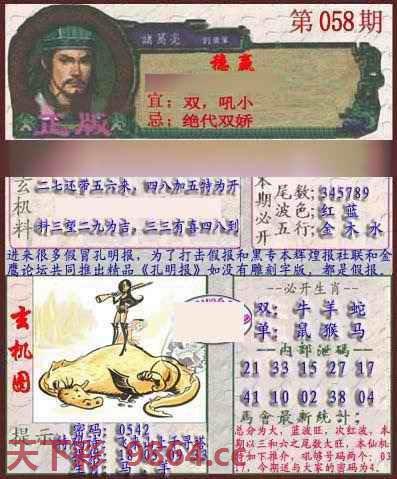 第058期
諸葛亮
稳 赢
宜：双，吼小
忌：绝代双娇
正版
玄机料
二七还带五六来，四八加五特为开
料三望二九为吉，三三有喜四八到
本期必开
尾数：345789
波色：红 蓝
五行：金 木 水
进来很多假冒孔明报，为了打击假报和黑专本辉煌报社联和金
鹰论坛共同推出精品《孔明报》如没有雕刻字版，都是假报。
玄机图
必开生肖
双：牛 羊 蛇
单：鼠 猴 马
内部泄码
21 33 15 27 17
20 13 16 34 51
41 10 02 38 04
馬會最新统计：
总分为大，蓝波旺，次红波，本
期以三和六之尾数大旺，本仙机
提示
密码：0542
天下彩 9564.cc